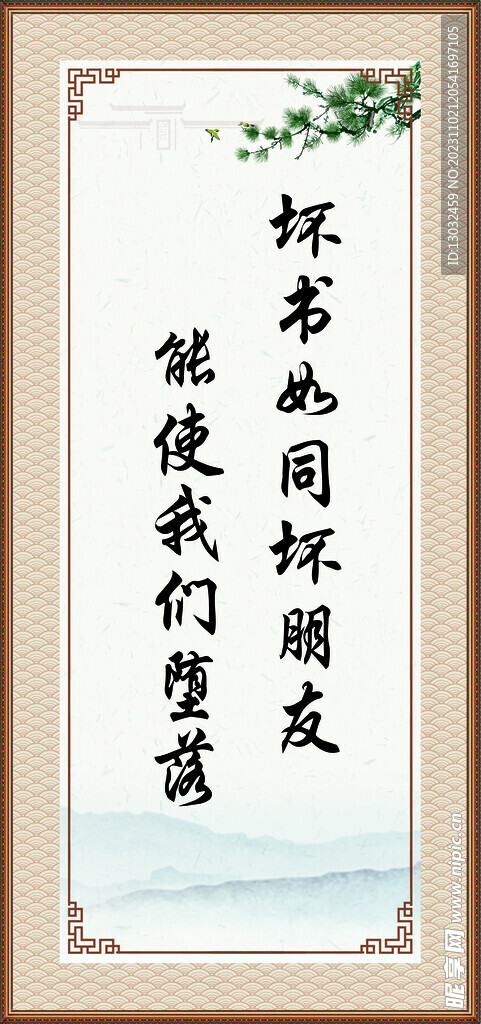 坏书如同坏朋友
能使我们堕落
ID:13032459 NO:20231102120541697105
昵享网 www.nipic.cn